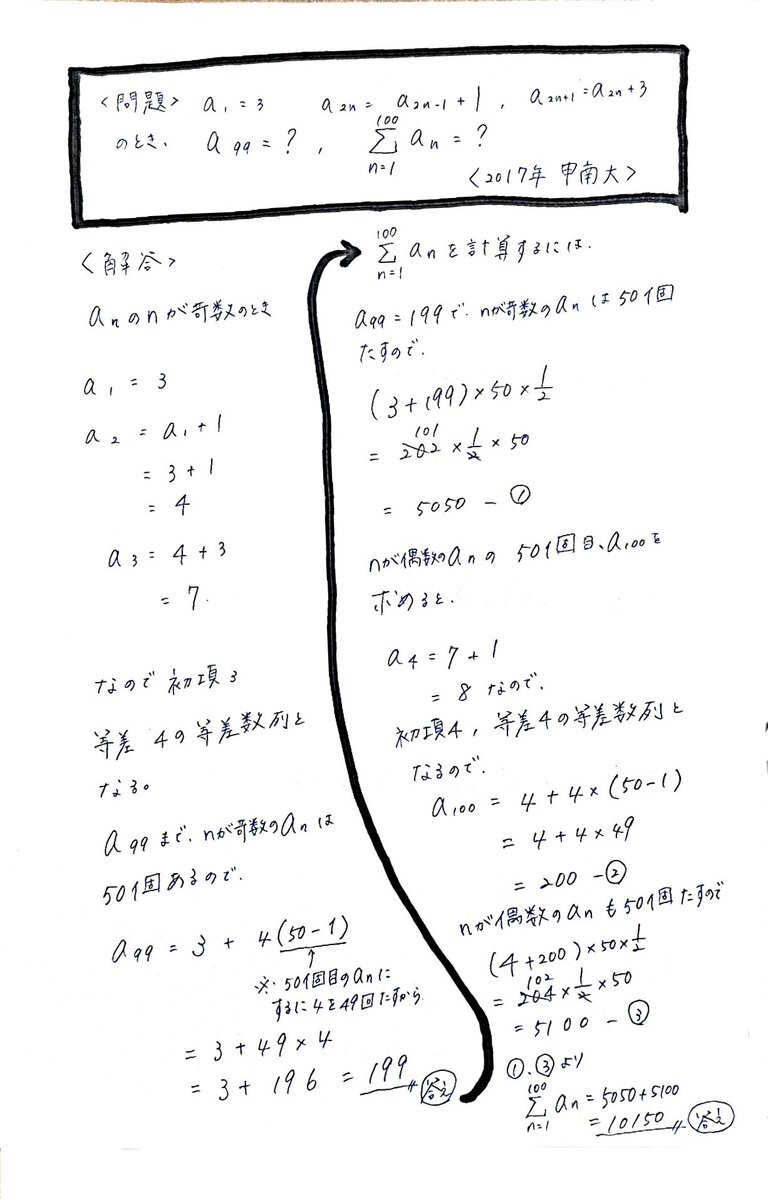 <問題> a₁=3 a₂ₙ= a₂ₙ₋₁+1, a₂ₙ₊₁=a₂ₙ+3
のとき、 a₉₉=?, Σ[n=1→100] aₙ=?
<2017年 甲南大>
<解答>
aₙのnが奇数のとき
a₁ = 3
a₂ = a₁+1
= 3+1
= 4
a₃ = 4+3
= 7.
なので初項3
等差 4の等差数列と
なる。
a₉₉まで、nが奇数のaₙは
50個あるので、
a₉₉ = 3 + 4(50-1)
↑
※50個目のaₙに
するに4を49回たすから
= 3+49×4
= 3+196 = 199 答え
Σ[n=1→100] aₙを計算するには、
a₉₉=199で、nが奇数のaₙは50個
たすので、
(3+199)×50×1/2
101
= 202×1/2×50
= 5050 - ①
nが偶数のaₙの 50個目、a₁₀₀を
求めると、
a₄=7+1
= 8 なので、
初項4, 等差4の等差数列と
なるので、
a₁₀₀ = 4+4×(50-1)
= 4+4×49
= 200 -②
nが偶数のaₙも50個たすので
(4+200)×50×1/2
102
= 204×1/2×50
= 5100 - ③
①、③より
Σ[n=1→100] aₙ=5050+5100
=10150 答え